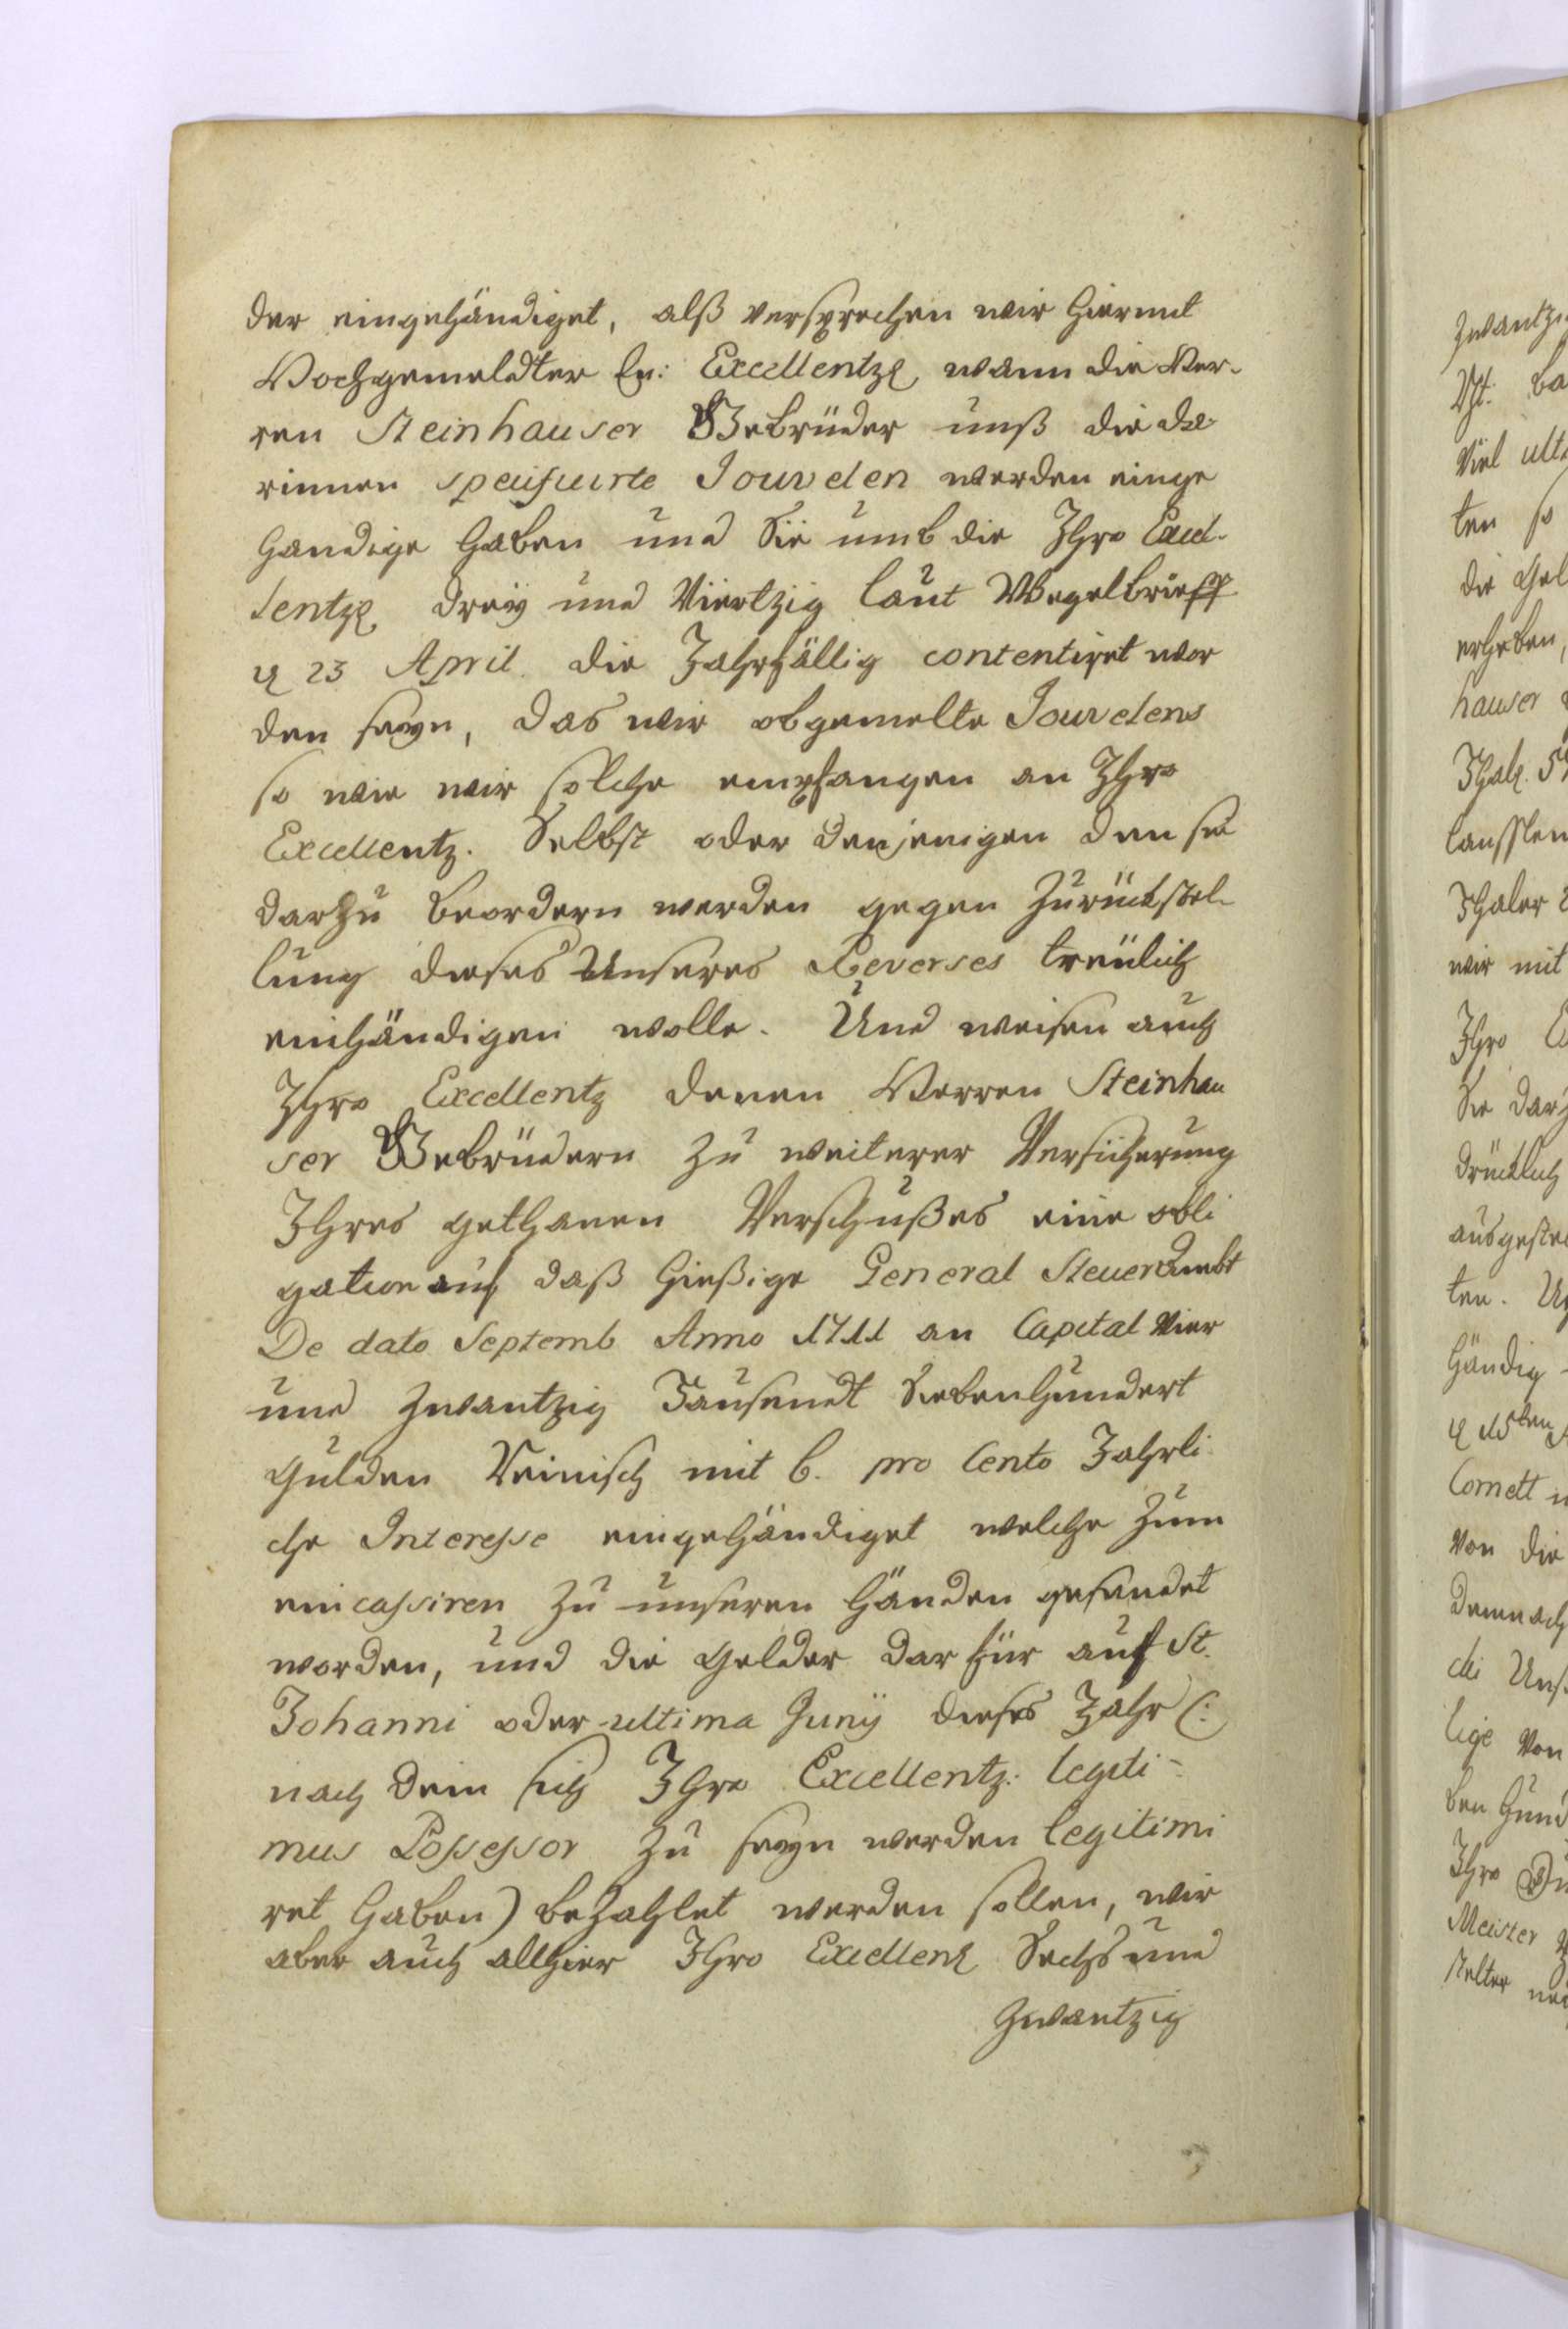 der eingehändiget, alß versprechen wir hiermit
Hochgemeldter En: Excellentz, wann die Her-
ren Steinhauser Gebrüder unß die da
rinnen specificirte Jouvelen werden einge
handige haben und Sie umb die Ihro Excel-
lentz, dreÿ und Viertzig laut Wegelbrieff
23 April. die Jahrfällig contentiret wor
den seyn, das wir obgemelte Jouvelens
so wie wir solche empfangen an Ihro
Excellentz. Selbst oder denjenigen den sie
darzu beordern werden gegen Zurückstel-
lung dieses Unseres Reverses treülich
einhändigen wolle. Und weisen auch
Ihro Excellentz denen Herren Steinhau
ser Gebrüdern zu weiterer Versicherung
Ihres gethanen Verschußes eine obli
gation auf daß hießige General Steuerambt
De dato Septemb Anno 1711 an Capital Vier
und zwantzig Tausendt Siebenhundert
Gulden Reinisch mit 6. pro Cento Jahrli
che Interesse eingehändiget welche zum
eincassiren zu unseren Händen gesendet
worden, und die Gelder dar für auf St.
Johanni oder ultima Junÿ dieses Jahr (:
nach dem sich Ihro Excellentz: legiti-
mus Possessor zu seyn werden legitimi
ret haben) bezahlet werden sollen, wir
aber auch allhier Ihro Excellentz Sechs und
zwantzig
zwantzi
Viel ult
ten so
die Gel
erheben,
hauser
Thaler
wir mit
Ihro
Sie dar
drücklich
ausgeste
ten.
händig
Cornett
Von die
demnach
lige Von
ben hund
Ihro
Meister